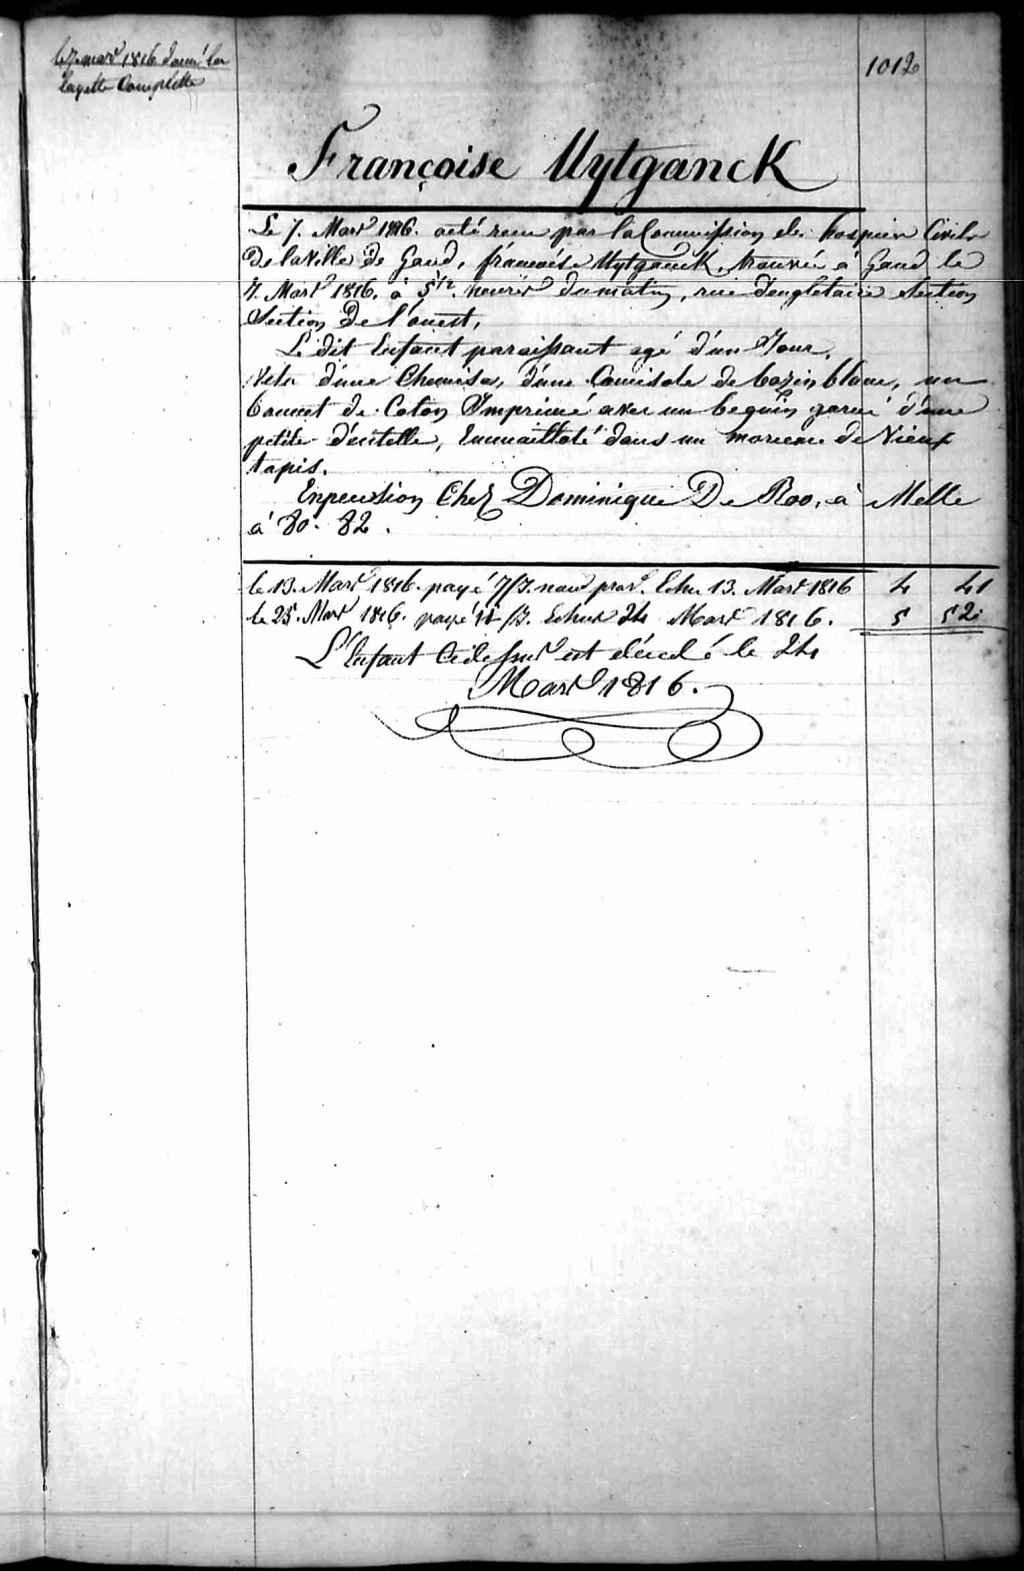 le 7. mars 1816 donné la
layette Complette
1012
Françoise Uytganck
Le 7. Mars 1816. a eté recu par la Commission des hospices Civils
De la Ville de Gand, françoise Uytganck, trouvée à Gand le
7. Mars 1816. à 5 1/2. heures du matin, rue d'engletaire Section
Section De l'ouest,
Le dit Enfant paraissant agé d'un Jour,
Vetu d'une Chemise, d'une Camisole de bazin blanc, un
bonnet de Coton Imprimé avec un beguin garni d'une
petite dentelle, Emmailloté dans un morceau de Vieux
tapis.
En pension Chez Dominique De Roo, à Melle
à 80. 82.
le 13. Mars 1816. payé 7/3. nou prov. Echu 13. Mars 1816 4 41
le 25. Mars 1816. payé 11/3. Echus 24 Mars 1816. 5 52
L'Enfant Cidessus est décédé le 24
Mars 1816.